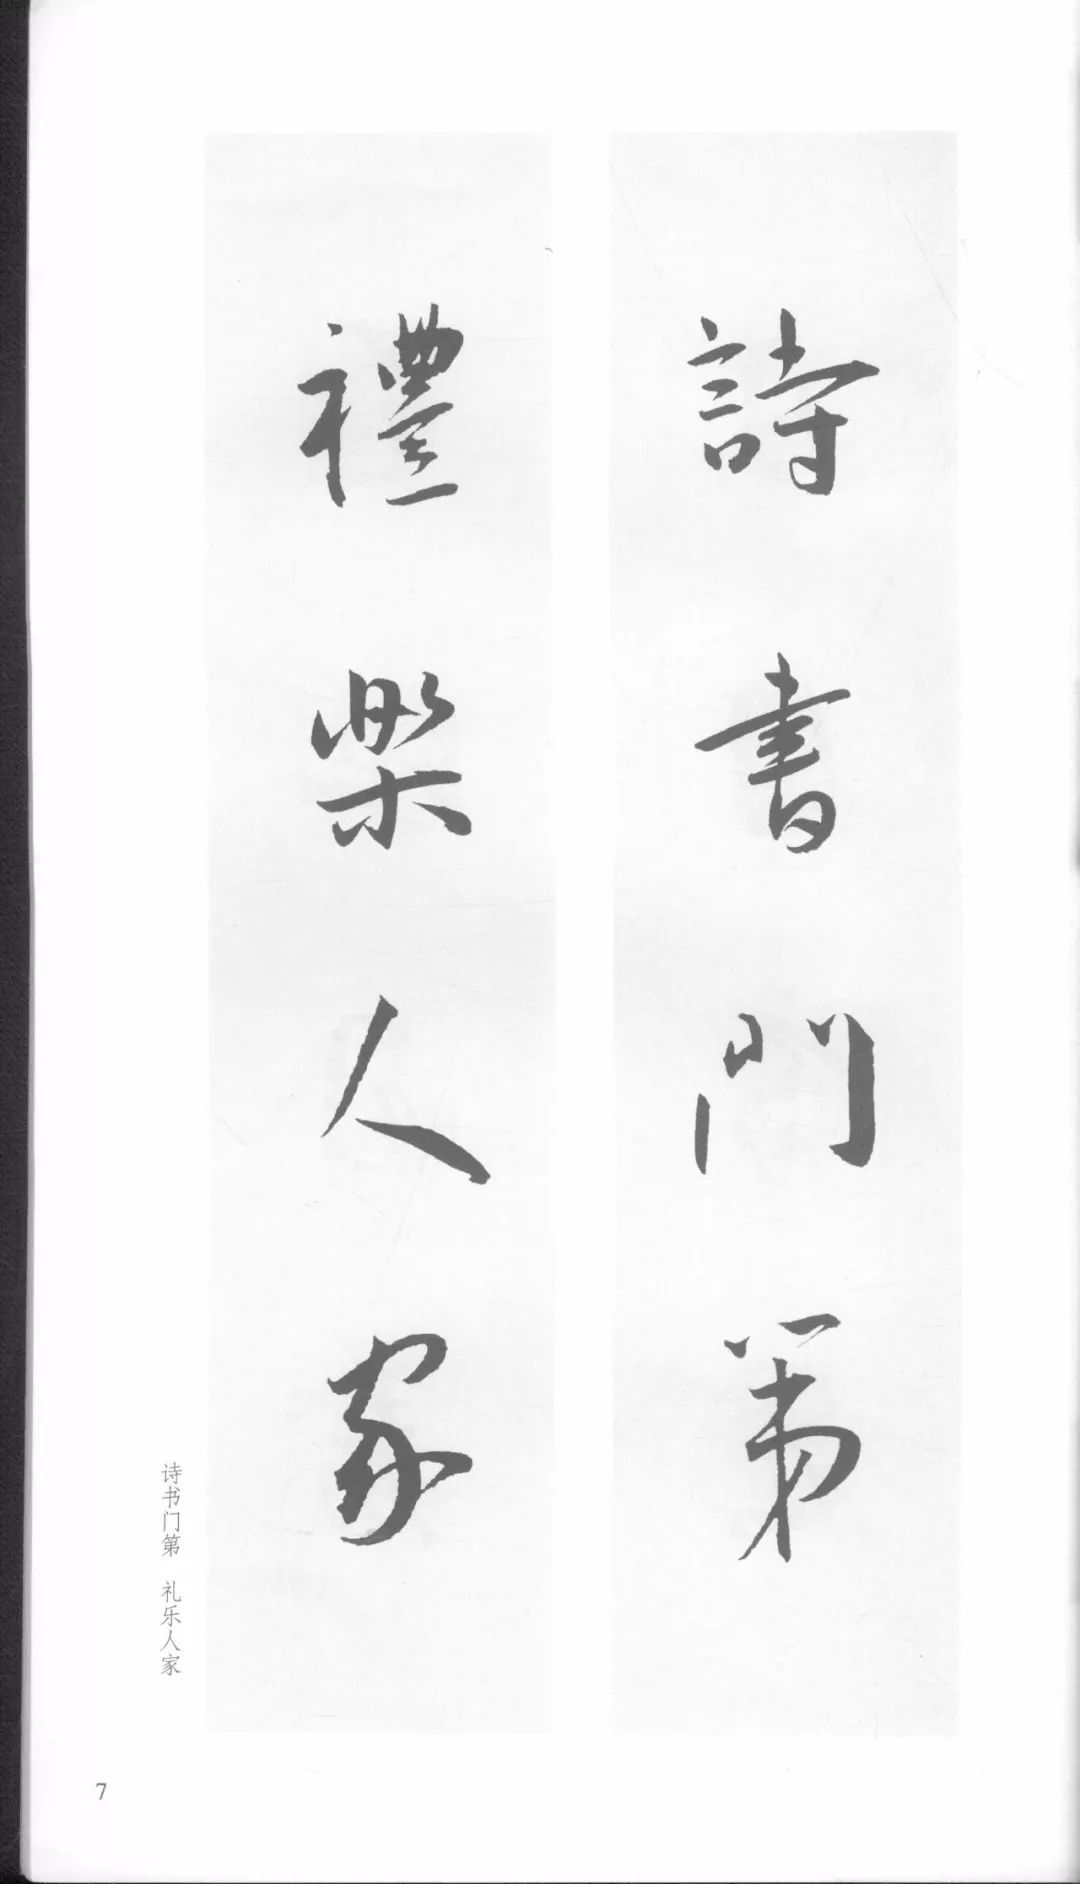 詩書門第
禮樂人家
诗书门第 礼乐人家
7